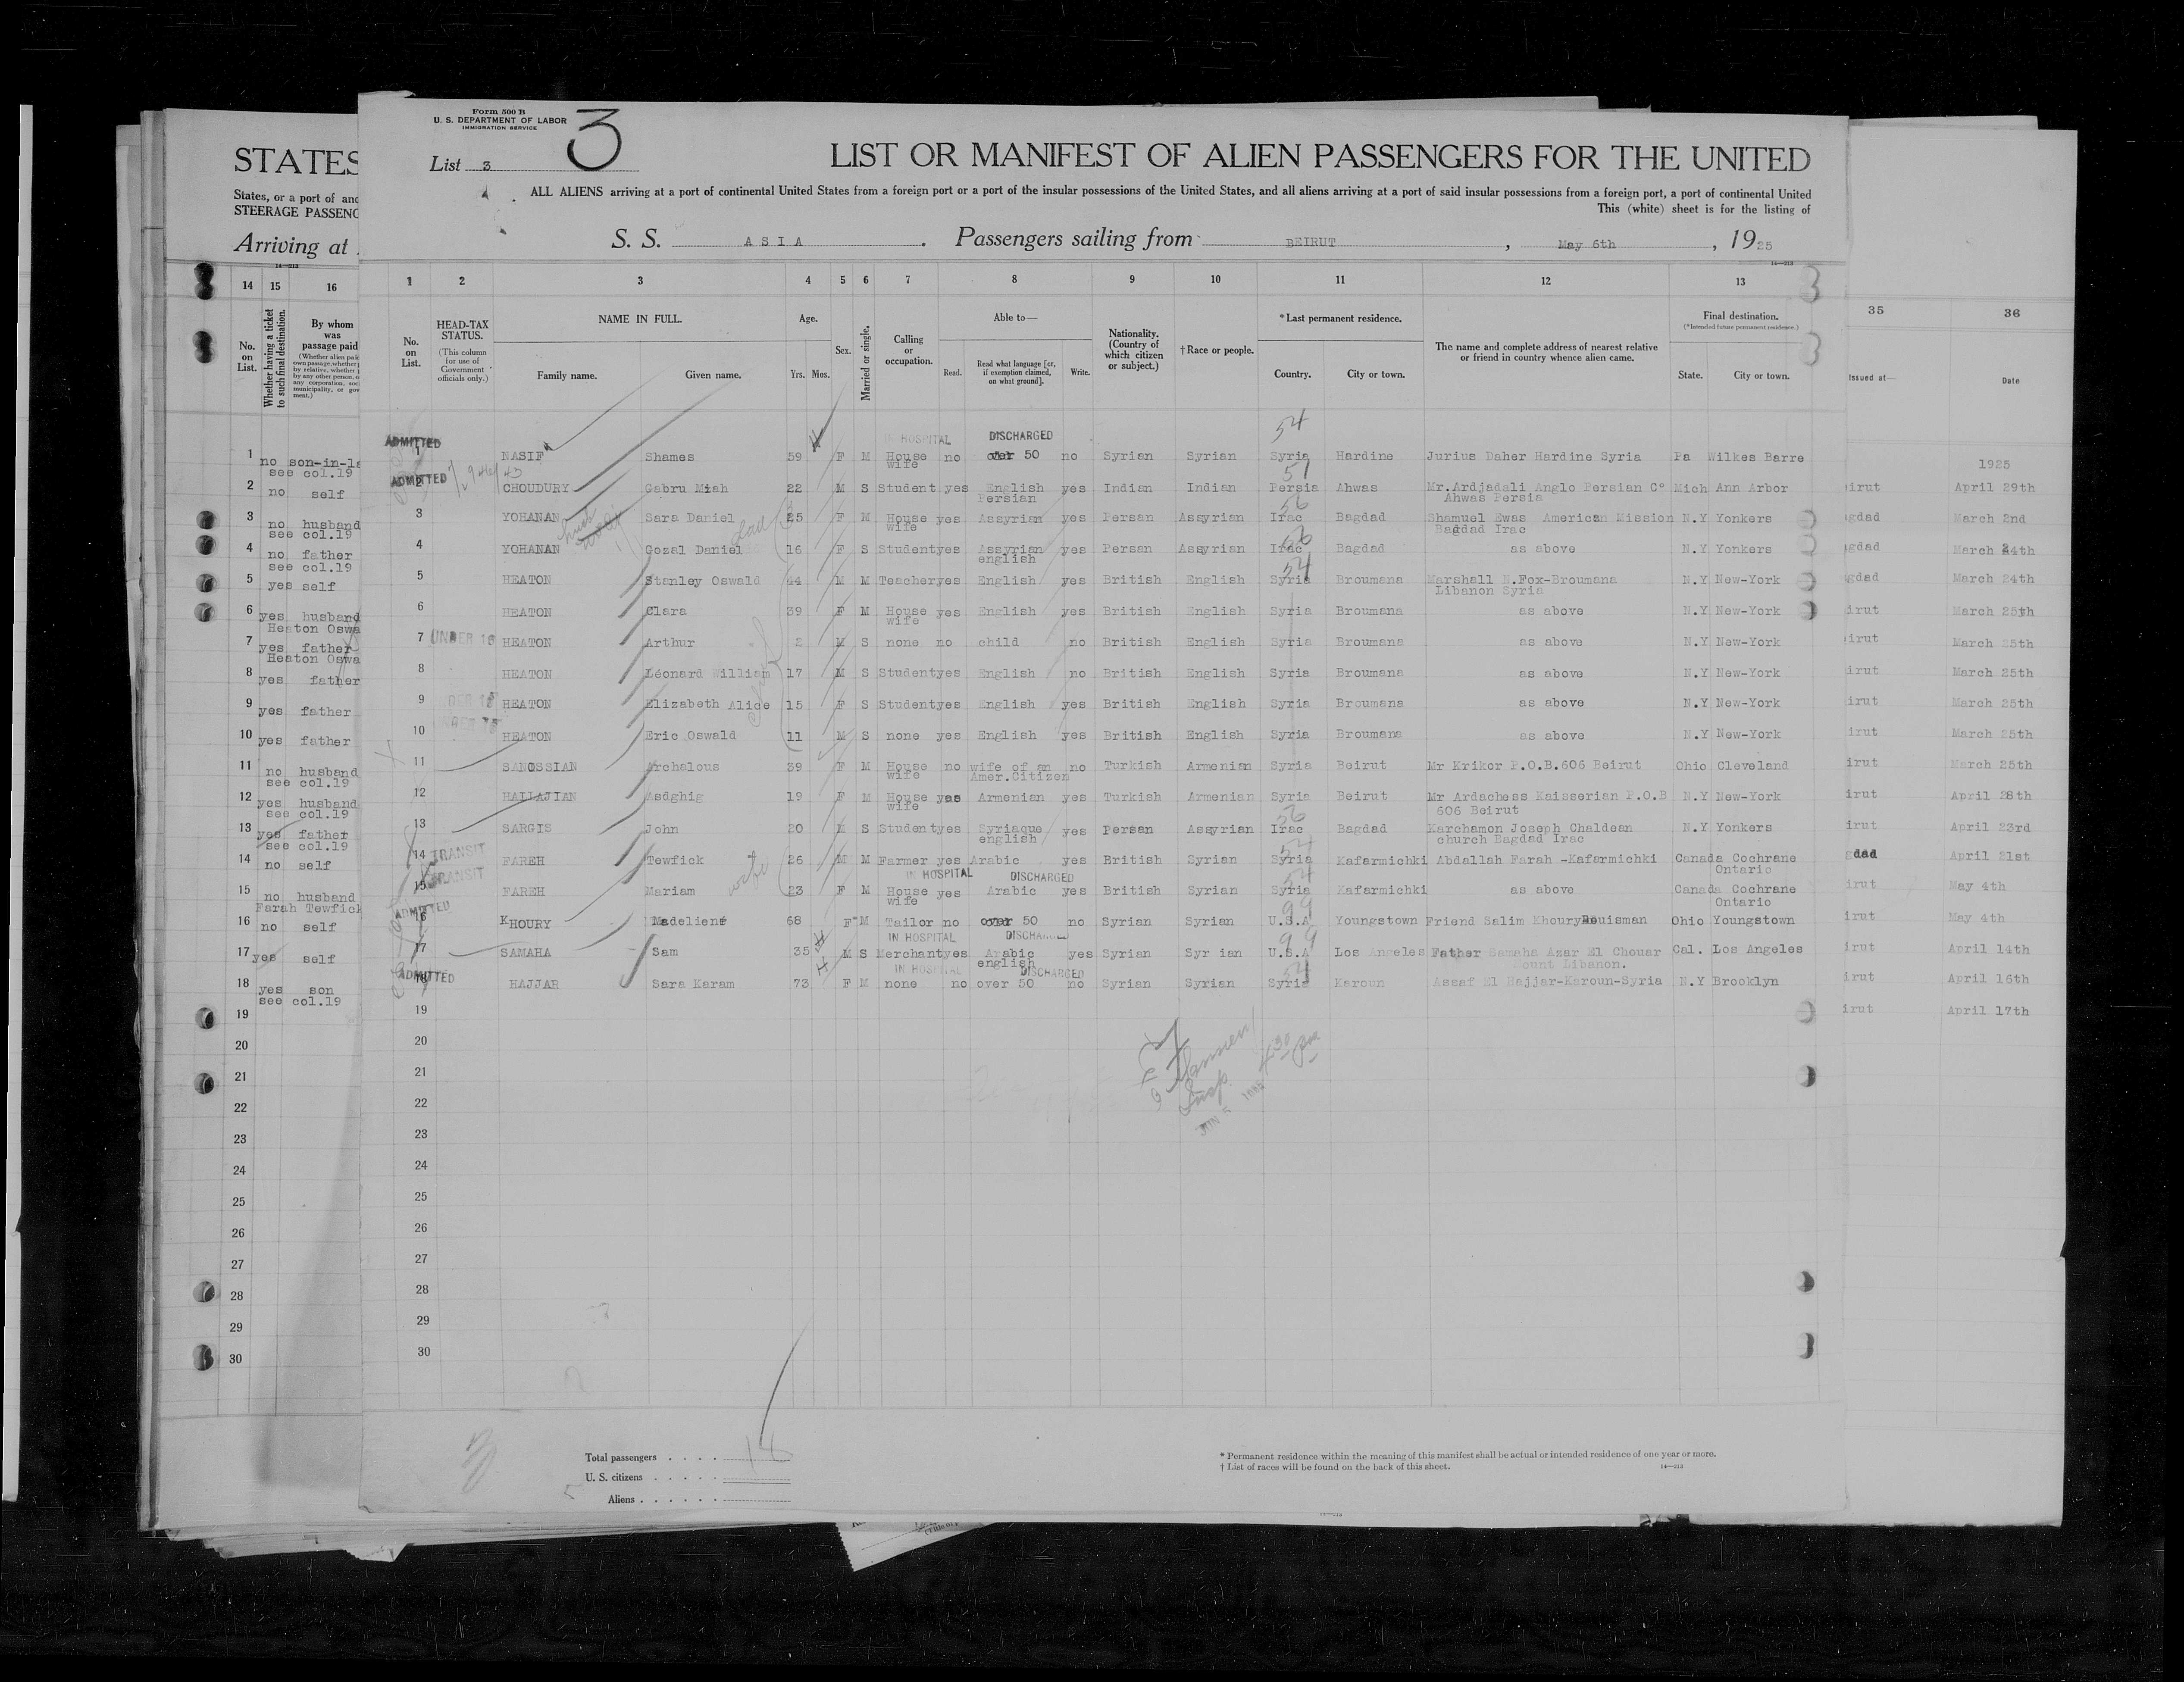 Form 500 B
U. S. DEPARTMENT OF LABOR
IMMIGRATION SERVICE
3
List 3
LIST OR MANIFEST OF ALIEN PASSENGERS FOR THE UNITED
ALL ALIENS arriving at a port of continental United States from a foreign port or a port of the insular possessions of the United States, and all aliens arriving at a port of said insular possessions from a foreign port, a port of continental United
This (white) sheet is for the listing of
S. S. ASIA. Passengers sailing from BEIRUT, May 6th, 1925
STATES
States, or a port of
STEERAGE
Arriving at
14 15 16
No. on List.
Whether having a ticket to such final destination.
By whom was passage paid
1 no son-in-
see col.19
2 no self
3 no husband
see col.19
4 no father
see col.19
5 yes self
6 yes husband
Heaton Oswa
7 yes father
Heaton Oswa
8 yes father
9 yes father
10 yes father
11 no husband
see col.19
12 yes husband
see col.19
13 yes father
see col.19
14 no self
15 no husband
Farah Tewfick
16 no self
17 yes self
18 yes son
see col.19
19
20
21
22
23
24
25
26
27
28
29
30
1 2 3 4 5 6 7 8 9 10 11 12 13
No. on List.
HEAD-TAX STATUS.
(This column for use of Government officials only.)
NAME IN FULL.
Family name. Given name.
Age.
Yrs. Mos.
Sex.
Married or single.
Calling or occupation.
Able to—
Read. Read what language [or, if exemption claimed, on what ground]. Write.
Nationality. (Country of which citizen or subject.)
† Race or people.
* Last permanent residence.
Country. City or town.
The name and complete address of nearest relative or friend in country whence alien came.
Final destination.
(*Intended future permanent residence.)
State. City or town.
ADMITTED IN HOSPITAL DISCHARGED 54
1 NASIF Shames 59 F M House wife no over 50 no Syrian Syrian Syria Hardine Jurius Daher Hardine Syria Pa Wilkes Barre
ADMITTED 51
2 CHOUDURY Gabru Miah 22 M S Student yes English Persian yes Indian Indian Persia Ahwas Mr.Ardjadali Anglo Persian Co Ahwas Persia Mich Ann Arbor
56
3 YOHANAN Sara Daniel 25 F M House wife yes Assyrian yes Persan Assyrian Irac Bagdad Shamuel Ewas American Mission Bagdad Irac N.Y Yonkers
4 YOHANAN Gozal Daniel 16 F S Student yes Assyrian english yes Persan Assyrian Irac Bagdad as above N.Y Yonkers
54
5 HEATON Stanley Oswald 44 M M Teacher yes English yes British English Syria Broumana Marshall N.Fox-Broumana Libanon Syria N.Y New-York
6 HEATON Clara 39 F M House wife yes English yes British English Syria Broumana as above N.Y New-York
7 UNDER 16 HEATON Arthur 2 M S none no child no British English Syria Broumana as above N.Y New-York
8 HEATON Léonard William 17 M S Student yes English no British English Syria Broumana as above N.Y New-York
9 HEATON Elizabeth Alice 15 F S Student yes English yes British English Syria Broumana as above N.Y New-York
10 HEATON Eric Oswald 11 M S none yes English yes British English Syria Broumana as above N.Y New-York
11 SANOSSIAN Archalous 39 F M House wife no wife of an Amer.Citizen no Turkish Armenian Syria Beirut Mr Krikor P.O.B.606 Beirut Ohio Cleveland
12 HALLAJIAN Asdghig 19 F M House wife yes Armenian yes Turkish Armenian Syria Beirut Mr Ardachess Kaisserian P.O.B 606 Beirut N.Y New-York
56
13 SARGIS John 20 M S Student yes Syriaque english yes Persan Assyrian Irac Bagdad Karchamon Joseph Chaldean church Bagdad Irac N.Y Yonkers
14 TRANSIT FAREH Tewfick 26 M M Farmer yes Arabic yes British Syrian Syria Kafarmichki Abdallah Farah -Kafarmichki Canada Cochrane Ontario
IN HOSPITAL DISCHARGED 54
15 TRANSIT FAREH Mariam wife 23 F M House wife yes Arabic yes British Syrian Syria Kafarmichki as above Canada Cochrane Ontario
ADMITTED 99
16 KHOURY Madeliene 68 F M Tailor no over 50 no Syrian Syrian U.S.A Youngstown Friend Salim Khoury Ohio Youngstown
IN HOSPITAL DISCHARGED 99
17 SAMAHA Sam 35 M S Merchant yes Arabic english yes Syrian Syrian U.S.A Los Angeles Father Samaha Azar El Chouar Mount Libanon. Cal. Los Angeles
ADMITTED IN HOSPITAL DISCHARGED 54
18 HAJJAR Sara Karam 73 F M none no over 50 no Syrian Syrian Syria Karoun Assaf El Hajjar-Karoun-Syria N.Y Brooklyn
19
20
21
22
23
24
25
26
27
28
29
30
Insp.
JUN 5
Total passengers . . . . 18
U. S. citizens . . . . .
Aliens . . . . . .
* Permanent residence within the meaning of this manifest shall be actual or intended residence of one year or more.
† List of races will be found on the back of this sheet.
14—213
35 36
Issued at— Date
1925
irut April 29th
gdad March 2nd
gdad March 24th
gdad March 24th
irut March 25th
irut March 25th
irut March 25th
irut March 25th
irut March 25th
irut March 25th
irut April 28th
irut April 23rd
dad April 21st
irut May 4th
irut May 4th
irut April 14th
irut April 16th
irut April 17th